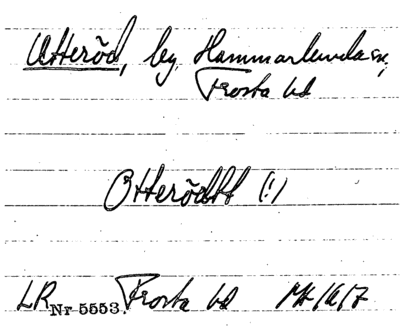 Utteröd, by, Hammarlunda sn,
Frosta hd
Otterödtt (!)
LR Nr 5553. Frosta hd